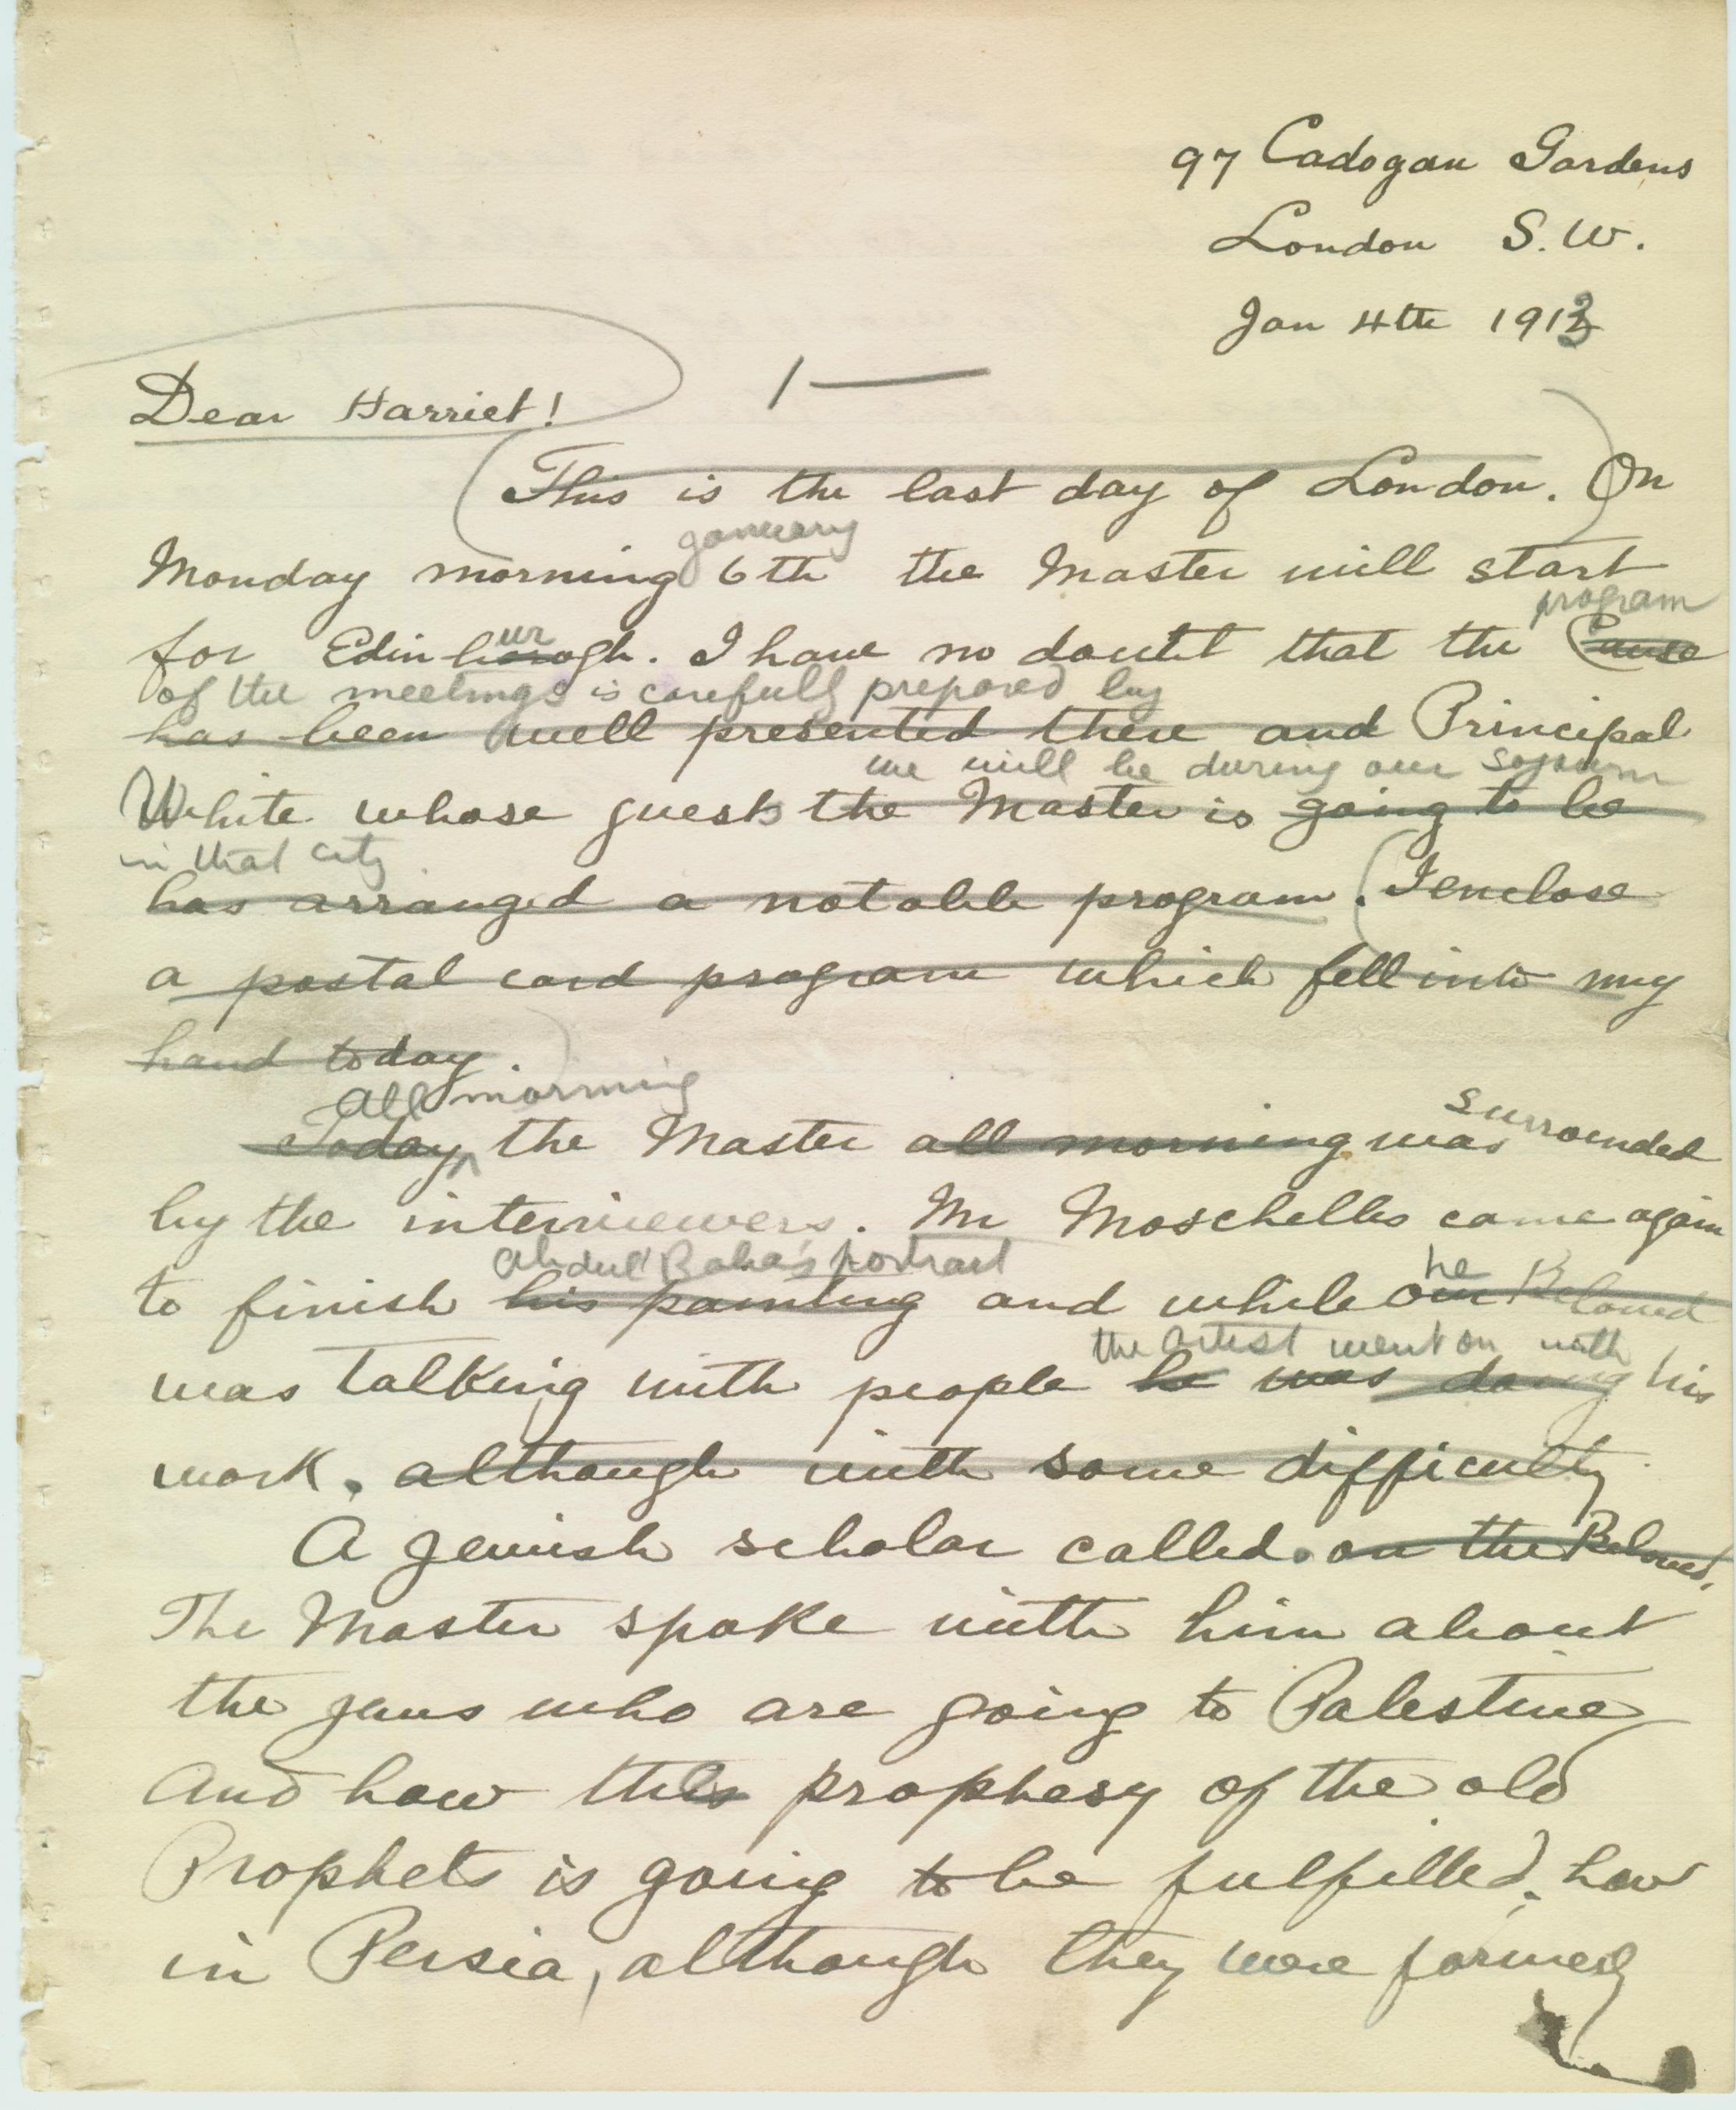 97 Cadogan Gardens
London S.W.
Jan 4th 1913
Dear Harriet!
1—
This is the last day of London. On
january
Monday morning 6th the Master will start
program
for Edinborough. I have no doubt that the Cause
ur
of the meetings is carefully prepared by
has been well presented there and Principal
we will be during our sojourn
White whose guests the Master is going to be
in that city
has arranged a notable program. I enclose
a postal card program which fell into my
hand today.
All morning
Today, the Master all morning was surrounded
by the interviewers. Mr Moschelles came again
Abdul Baha's portrait
to finish his painting and while our Beloved
he
the artist went on with
was talking with people he was doing his
work. although with some difficulty
A Jewish scholar called. on the Beloved.
The Master spoke with him about
the jews who are going to Palestine
And how this prophesy of the old
Prophets is going to be fulfilled, how
in Persia, although they were formerly